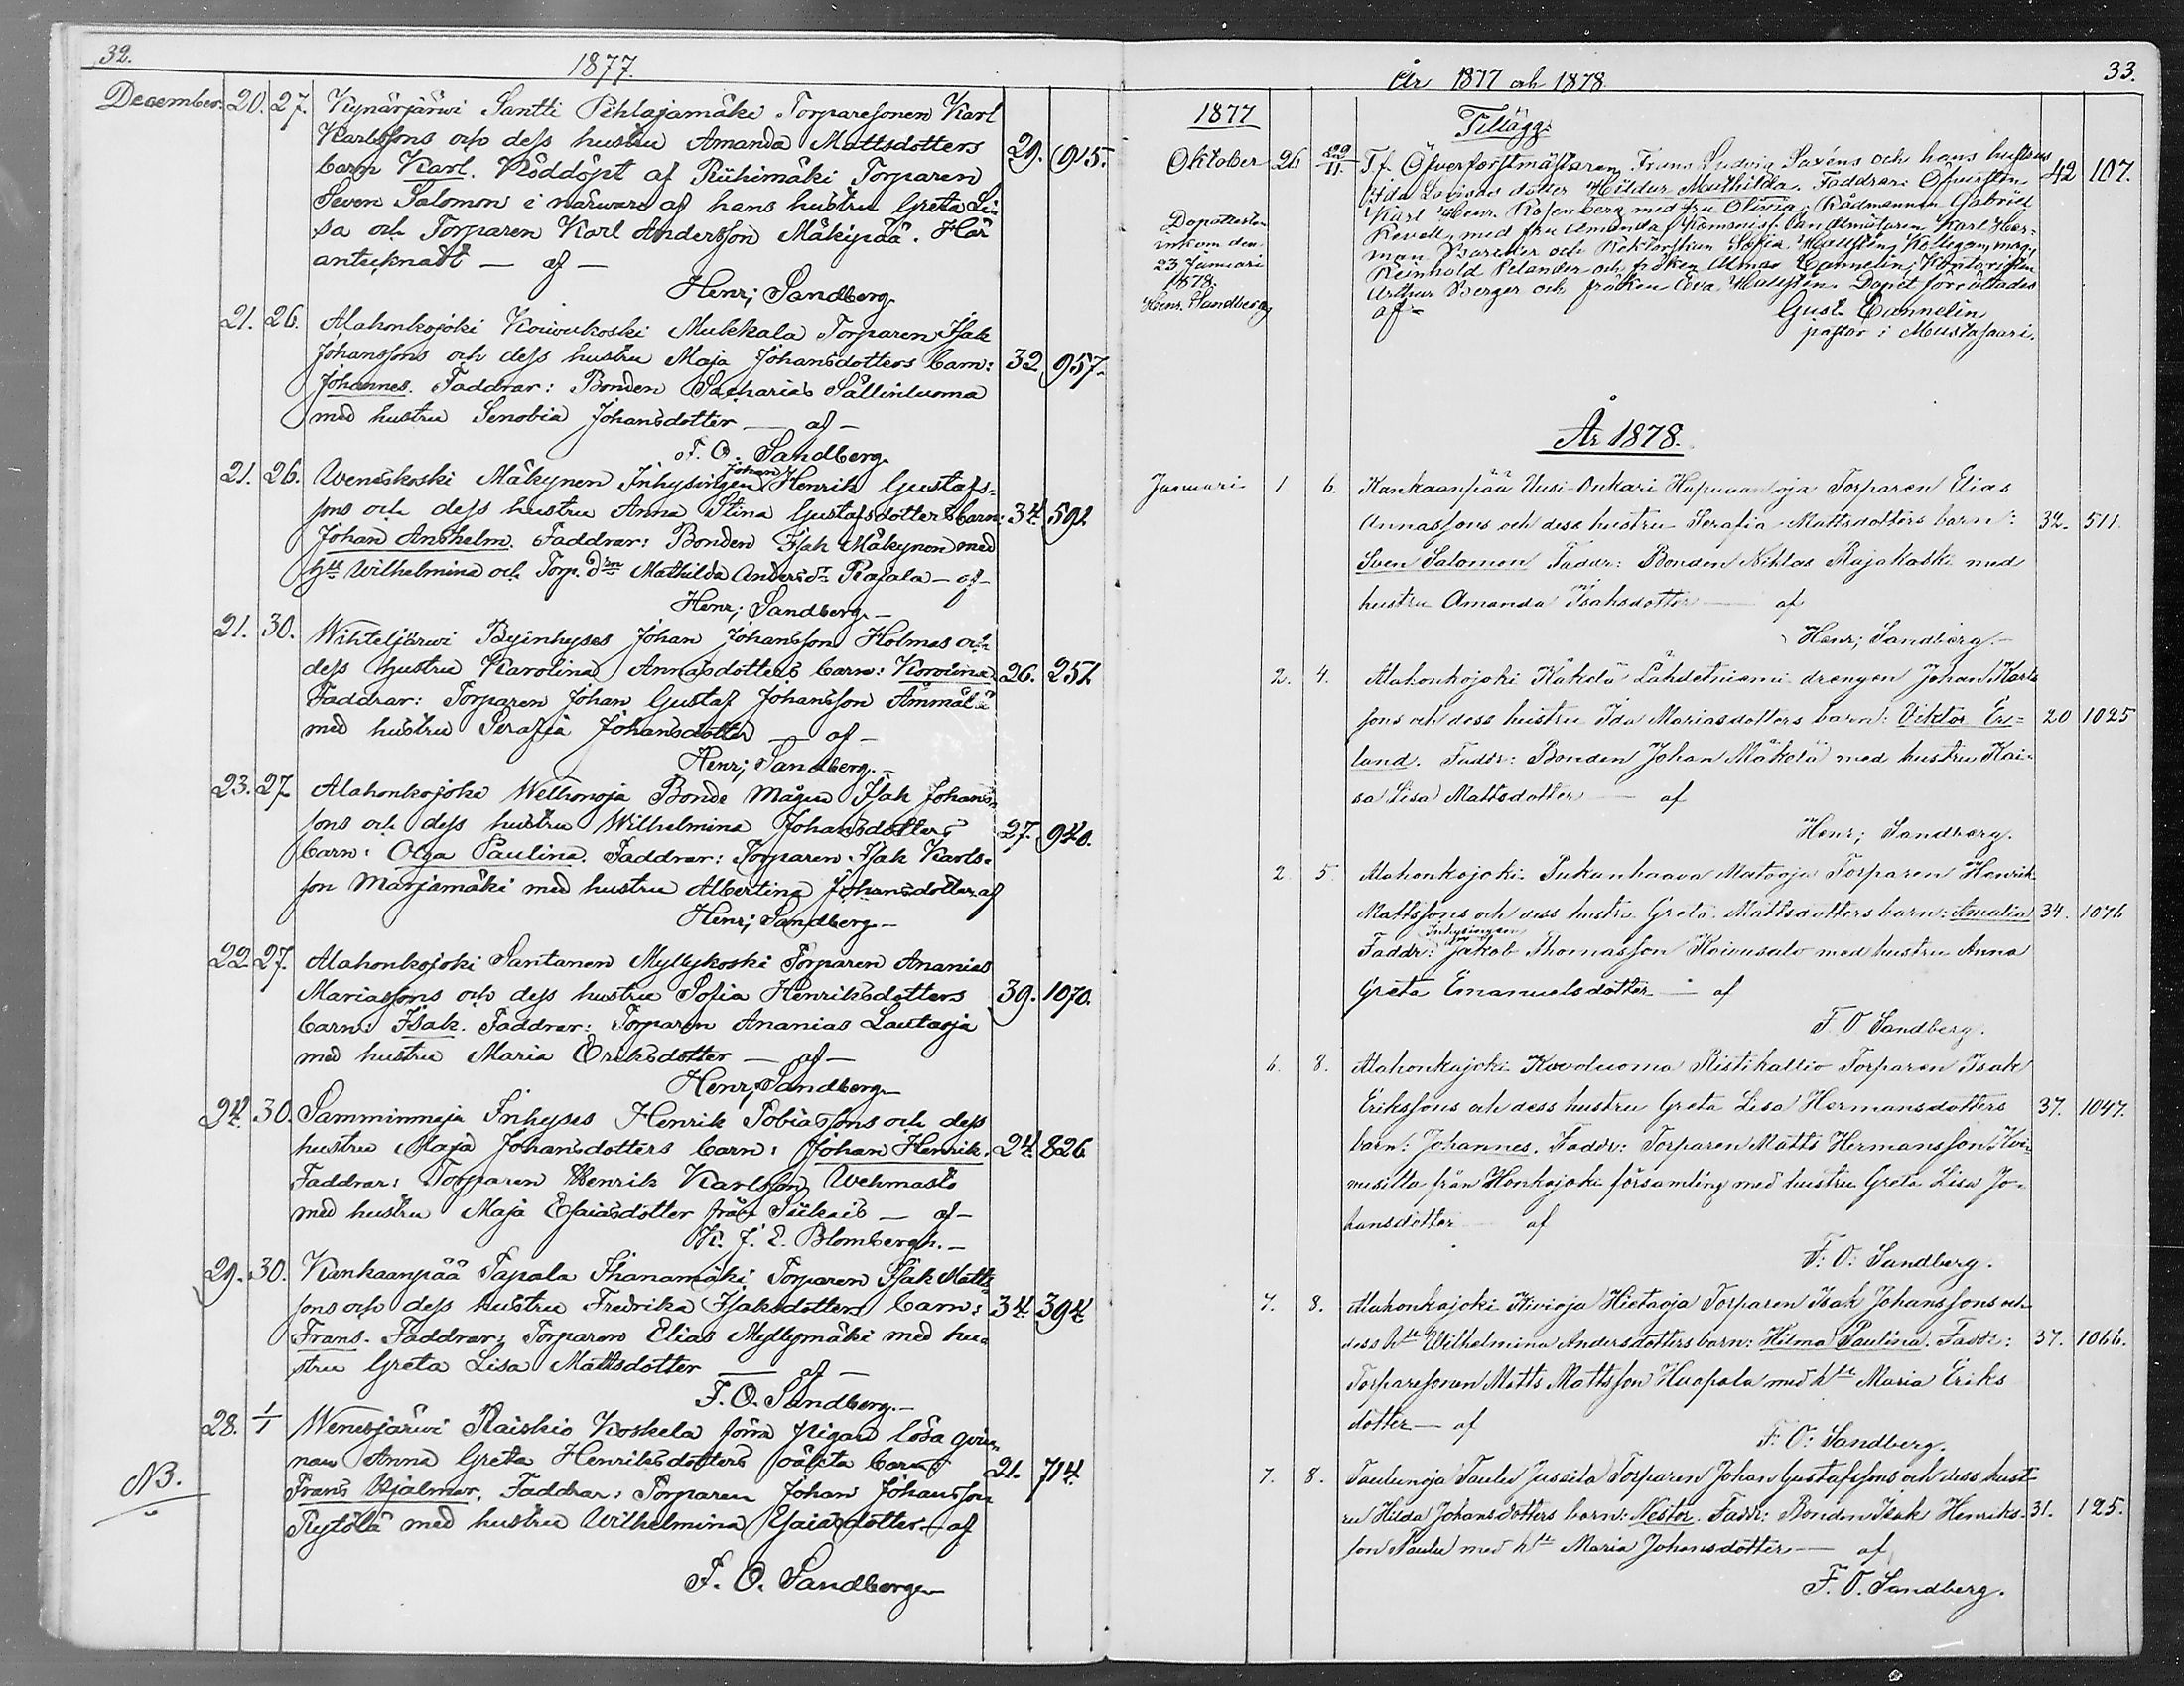 32.
1877.
December. 20. 27. Kynärjärwi Santti Pihlajamäki Torparesonen Karl
Karlssons och dess hustru Amanda Mattsdotters 29. 915.
barn Karl. Nöddöpt af Riihimäki Torparen
Seven Salomon i närwaro af hans hustru Greta Li=
sa och Torparen Karl Andersson Mäkipää. Här
antecknadt — af —
Henr; Sandberg
21. 26. Alahonkojoki Koiwukoski Mukkala Torparen Isak
Johanssons och dess hustru Maja Johansdotters barn: 32. 957.
Johannes. Faddrar: Bonden Sacharias Sällinluoma
med hustru Senobia Johansdotter — af —
F. O. Sandberg
21. 26. Weneskoski Mäkynen Inhysingen Johan Henrik Gustafs=
sons och dess hustru Anna Stina Gustafsdotters barn: 34. 592
Johan Anshelm. Faddrar: Bonden Isak Mäkynen med
hu Wilhelmina och Torp. drn Mathilda Andersdr Rajala — af —
Henr; Sandberg —
21. 30. Wihteljärwi Byinhyses Johan Johansson Holmas och
dess hustru Karolina Annasdotters barn: Karolina 26. 251.
Faddrar: Torparen Johan Gustaf Johansson Ämmälä
med hustru Serafia Johansdotter — af —
Henr; Sandberg. —
23. 27. Alahonkojoki Welhonoja Bonde mågen Isak Johans=
sons och dess hustru Wilhelmina Johansdotters 27. 940.
barn: Olga Paulina. Faddrar: Torparen Isak Karls=
son Marjamäki med hustru Albertina Johansdotter af
Henr; Sandberg —
22. 27. Alahonkojoki Santanen Myllykoski Torparen Ananias
Mariassons och dess hustru Sofia Henriksdotters 39. 1070.
barn: Isak. Faddrar: Torparen Ananias Lautaoja
med hustru Maria Eriksdotter — af —
Henr; Sandberg —
24. 30. Samminmaja Inhyses Henrik Tobiassons och dess
hustru Maja Johansdotters barn: Johan Henrik. 24. 826
Faddrar: Torparen Henrik Karlsson Wehmasto
med hustru Maja Esaiasdotter från Siikais — af —
K. J. E. Blombergh. —
29. 30. Kankaanpää Tapala Ihanamäki Torparen Isak Matts
sons och dess hustru Fredrika Isaksdotters barn: 34. 394
Frans. Faddrar: Torparen Elias Myllymäki med hu=
stru Greta Lisa Mattsdotter — af —
F. O. Sandberg. —
28. 1/1 Wenesjärwi Raiskio Koskela förra pigan lösa qvin=
nan Anna Greta Henriksdotters oäkta barn: 21. 714
NB. Frans Hjalmar. Faddrar: Torparen Johan Johansson
Rytölä med hustru Wilhelmina Esaiasdotter — af
F. O. Sandberg —
33.
År 1877 och 1878.
1877
Tillägg:
Oktober 26 22/11. T.f. Öfverforstmästaren Frans Ludvig Saxéns och hans hustrus 42 107.
Ida Lovisas dotter Hildur Mathilda. Faddrar: Öfversten
Karl Henr. Rosenberg med fru Olivia, Rådmannen Gabriel
Revell, med fru Amanda, Landtmätaren Karl Her=
man Barcker och Rektorskan Sofia Hallsten,
Reinhold Relander och fröken Alma Cannelin; Kontoristen
Arthur Berger och fröken Eva Hallstén. Dopet förrättades
af — Gust. Cannelin
pastor i Mustasaari.
Dopattesten
inkom den
23 Januari
1878.
Henr. Sandberg
År 1878.
Januari 1 6. Kankaanpää Uusi-Onkari Hapuanoja Torparen Elias
Annassons och dess hustru Serafia Mattsdotters barn: 32. 511.
Sven Salomon Faddr: Bonden Niklas Rajakoski med
hustru Amanda Isaksdotter — af
Henr; Sandberg. —
2. 4. Alahonkojoki Käkelä Lähdetniemi drengen Johan Karls
sons och dess hustru Ida Mariasdotters barn: Viktor Er= 20 1025
land. Faddr: Bonden Johan Mäkelä med hustru Kai=
sa Lisa Mattsdotter — af
Henr; Sandberg.
2. 5. Alahonkojoki Pukanhaava Mataoja Torparen Henrik
Mattssons och dess hustru Greta Mattsdotters barn: Amalia 34. 1076
Faddr: Inhysingen Jakob Thomasson Koivusalo med hustru Anna
Greta Emanuelsdotter — af
F. O Sandberg.
6. 8. Alahonkojoki Kovoluoma Ristikallio Torparen Isak
Erikssons och dess hustru Greta Lisa Hermansdotters 37. 1047.
barn: Johannes. Faddr: Torparen Matts Hermansson Kvi=
musilta från Honkajoki församling med hustru Greta Lisa Jo=
hansdotter — af
F. O. Sandberg.
7. 8. Alahonkojoki Kivioja Hietaoja Torparen Isak Johanssons och
dess hu Wilhelmina Andersdotters barn: Hilma Paulina. Faddr: 37. 1066.
Torparesonen Matts Mattsson Huopala med hu Maria Eriks
dotter — af
F. O. Sandberg.
7. 8. Taulunoja Taulu Jussila Torparen Johan Gustafssons och dess hust=
ru Hilda Johansdotters barn: Nestor. Faddr: Bonden Isak Henriks= 31. 125.
son Taulu med hu Maria Johansdotter — af
F. O. Sandberg.